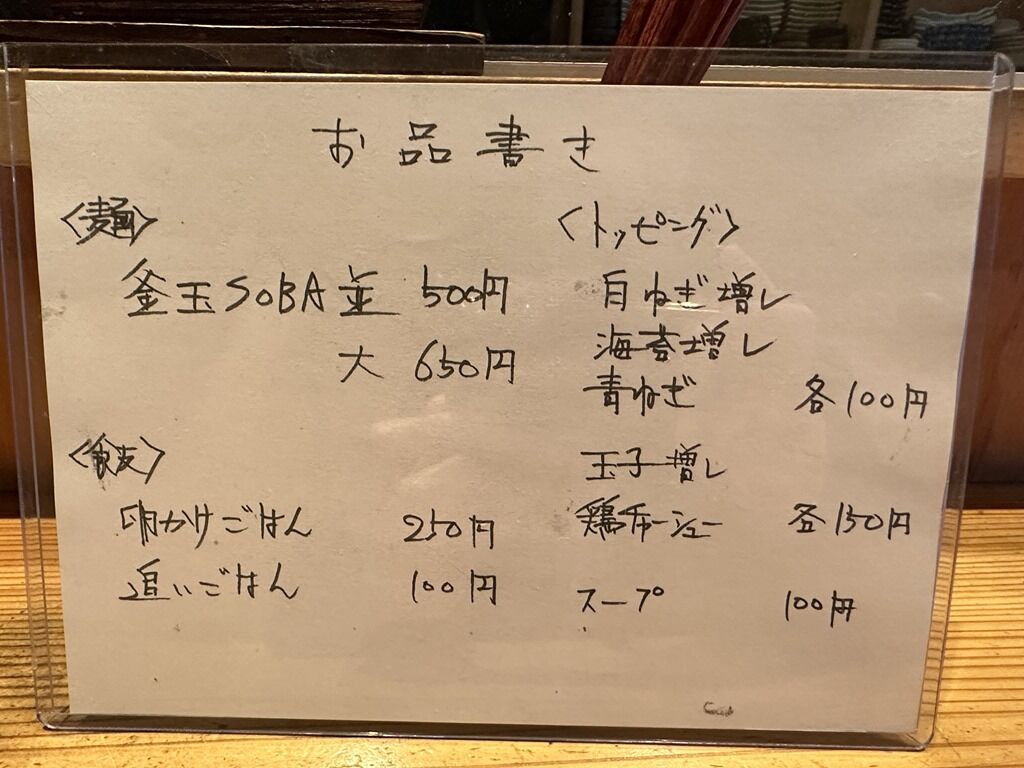 お品書き
〈麺〉
釜玉SOBA 並 500円
大 650円
〈飯〉
卵かけごはん 250円
追いごはん 100円
〈トッピング〉
白ねぎ増し
海苔増し
青ねぎ 各100円
玉子増し
鶏チャーシュー 各150円
スープ 100円